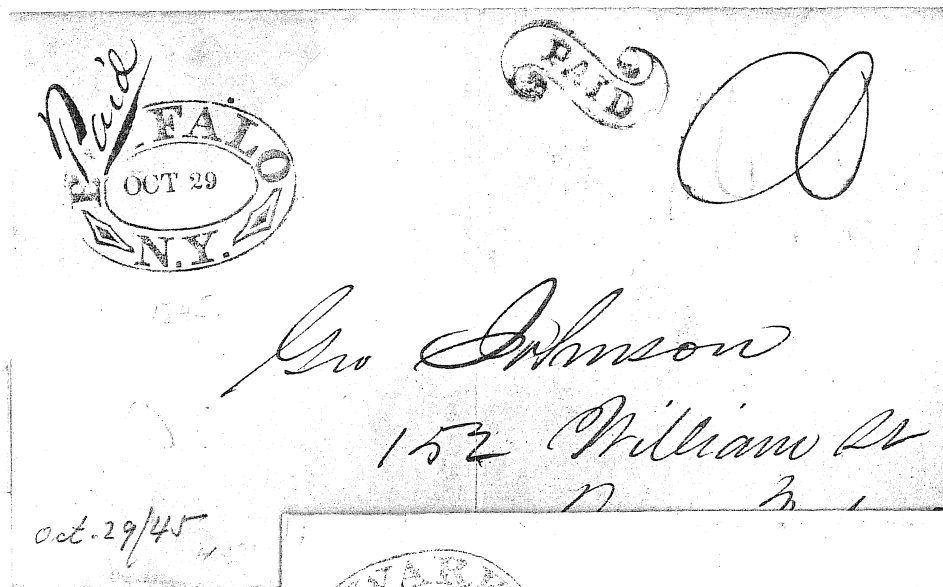 Paid
PAID
BUFFALO
OCT 29
N.Y.
Geo Johnson
152 William St
Oct. 29/45